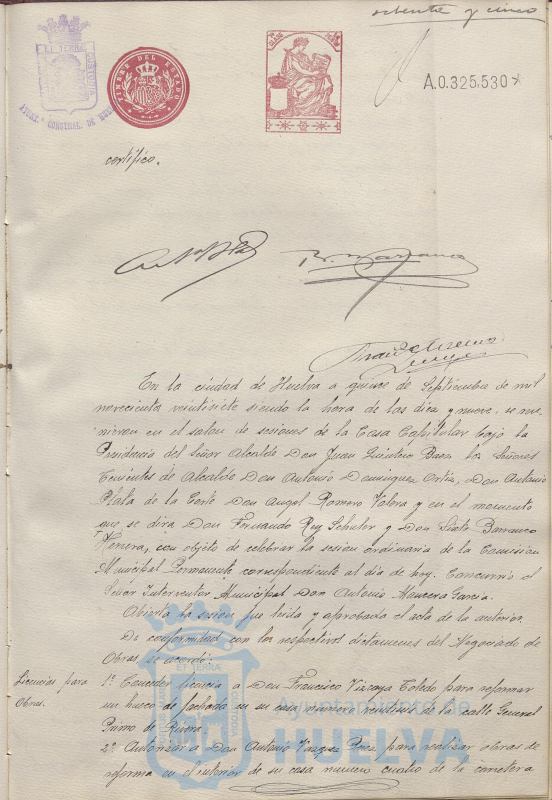 setenta y cinco
ET TERRÆ CUSTODIA
AYUNT.º CONSTNAL. DE
TIMBRE DEL ESTADO
A.0.325.530*
certifico.
En la ciudad de Huelva a quince de Septiembre de mil
novecientos veintisiete siendo la hora de las diez y nueve, se reu-
nieron en el salon de sesiones de la Casa Capitular bajo la
Presidencia del Señor Alcalde Don Juan Quintero Baez los Señores
Tenientes de Alcalde Don Antonio Dominguez Ortiz, Don Antonio
Plata de la Corte Don Angel Romero Valera y en el momento
que se dirá Don Fernando Rey Schuler y Don Sixto Barranco
Venera, con objeto de celebrar la sesion ordinaria de la Comision
Municipal Permanente correspondiente al dia de hoy. Concurrió el
Señor Interventor Municipal Don Antonio Mancera Garcia.
Abierta la sesion fue leida y aprobada el acta de la anterior.
De conformidad con los respectivos dictamenes del Negociado de
Obras, se acordó:
Licencias para
Obras.
1.º Conceder licencia a Don Francisco Vizcaya Toledo para reformar
un hueco de fachada en su casa numero de la calle General
Primo de Rivera.
2.º Autorizar a Don Antonio Vazquez Perez para realizar obras de
reforma en el interior de su casa numero cuatro de la carretera
Ayuntamiento de
HUELVA